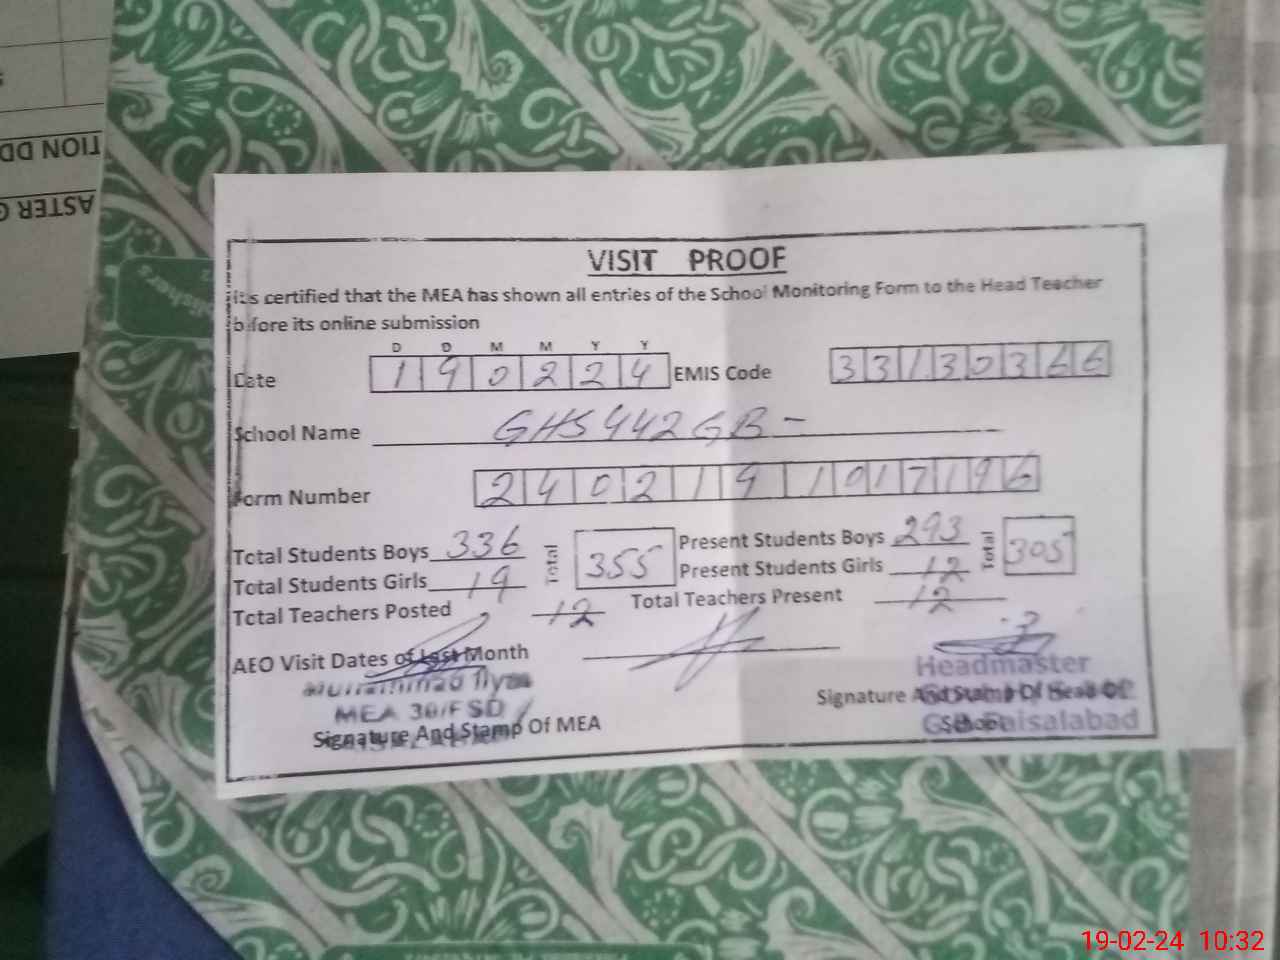 TION DD
ASTER
VISIT PROOF
It's certified that the MEA has shown all entries of the School Monitoring Form to the Head Teacher
before its online submission
D D M M Y Y
Date 190224 EMIS Code 33130366
School Name GHS 442 GB -
Form Number 2402191017196
Total Students Boys 336 Total 355 Present Students Boys 293 Total 305
Total Students Girls 19 Present Students Girls 12
Total Teachers Posted 12 Total Teachers Present 12
AEO Visit Dates of Last Month
Headmaster
MEA 30/FSD
Signature And Stamp Of Head Of
Signature And Stamp Of MEA
School
Faisalabad
19-02-24 10:32